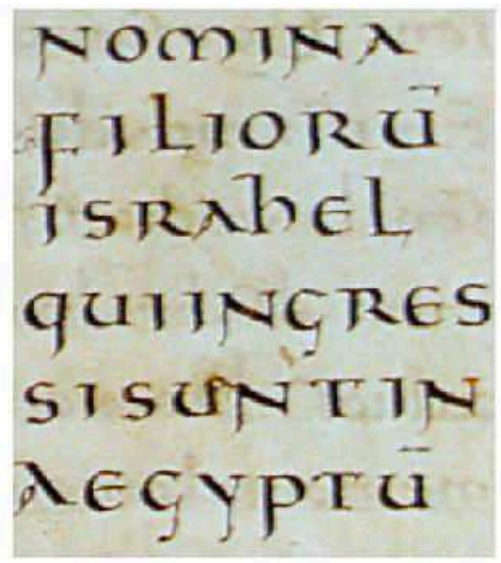 NOMINA
FILIORŪ
ISRAhEL
QUIINGRES
SISUNTIN
AEGYPTŪ